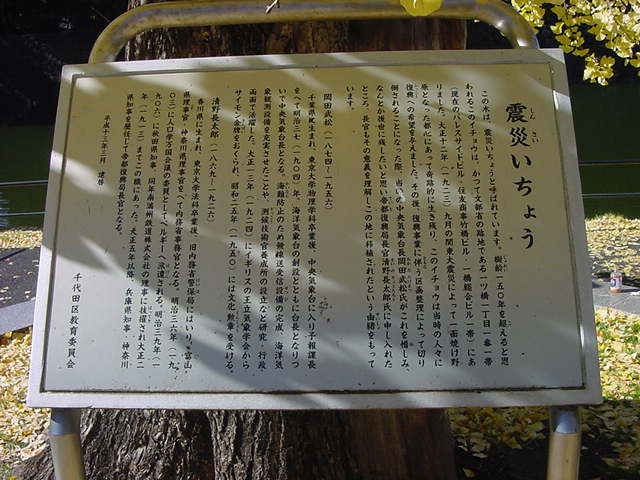 震災いちょう
しん さい
この木は、震災いちょうと呼ばれています。樹齢一五〇年を超えると思
われるこのイチョウは、かつて文部省の跡地である一ツ橋一丁目一番一帯
（現在のパレスサイドビル・住友商事竹橋ビル・一橋総合ビル一帯）にあ
りました。大正十二年（一九二三）九月の関東大震災によって一面焼け野
原となった都心にあって奇跡的に生き残り、このイチョウは当時の人々に
復興への希望を与えました。その後、復興事業に伴う区画整理によって切り
倒されることになった際、当時の中央気象台長岡田武松氏がこれを惜しみ、
なんとか後世に残したいと思い帝都復興局長官清野長太郎氏に申し入れた
ところ、長官もその意義を理解しこの地に移植されたという由緒をもって
います。
岡田武松（一八七四～一九五六）
千葉県に生まれ、東京大学物理学科卒業後、中央気象台に入り予報課長
をへて明治三七（一九〇四）年、海洋気象台の創設とともに台長となりつ
いで中央気象台長となる。海難防止のため無線送受信設備の完成、海洋気
象観測設備を充実させたことや、測候技術官養成所の設立など研究、行政
両面で活躍した。大正一三年（一九二四）にイギリスの王立気象学会から
サイモン金牌をおくられ、昭和二五年（一九五〇）には文化勲章を受ける。
清野長太郎（一八六九～一九二六）
香川県に生まれ、東京大学法科卒業後、旧内務省警保局にはいり、富山
県理事官、神奈川県理事官をへて内務省事務官となる。明治三六年（一九
〇三）に人口学万国会議の委員としてベルギーへ派遣される。明治三九年（一
九〇六）に秋田県知事、同年南満州鉄道株式会社の理事に抜擢され大正二
年（一九一三）までこの職にあった。大正五年以降、兵庫県知事、神奈川
県知事を歴任して帝都復興局長官となる。
平成十三年三月 建替
千代田区教育委員会